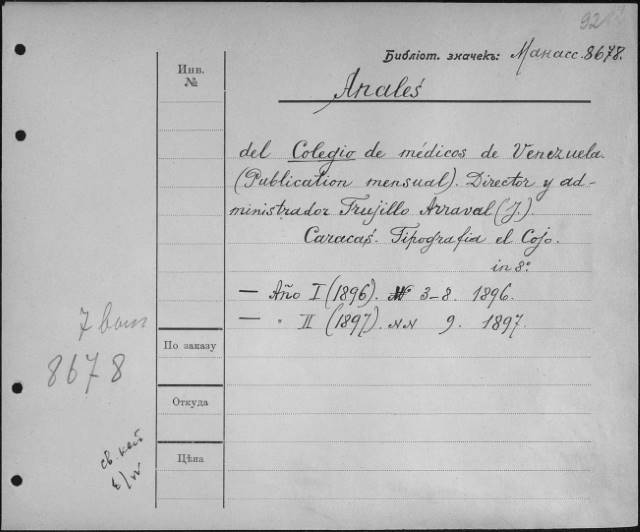 Библіот. значекъ: Манасс. 8678.
Инв.
№
Anales
del Colegio de médicos de Venezuela.
(Publication mensual). Director y ad-
ministrador Trujillo Arraval (J.).
Caracas. Tipografia el Cojo.
in 8°
— Año I (1896). № 3-8. 1896.
— " II (1897). NN 9. 1897.
8678
По заказу
Откуда
Цѣна